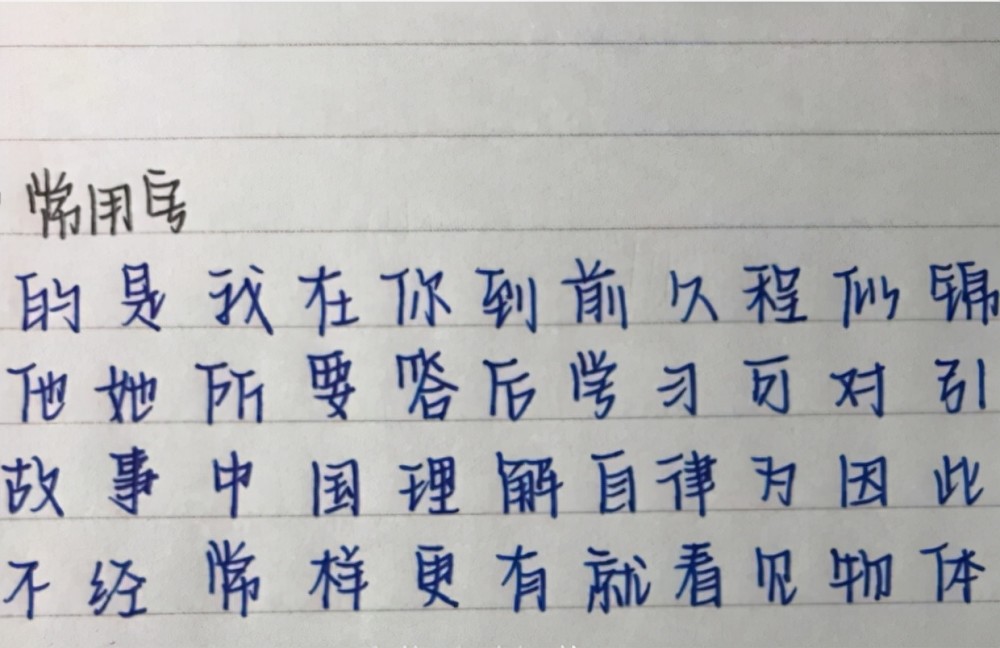 常用字
的是我在你到前久程似锦
他她所要答后学习可对引
故事中国理解自律为因此
不经常样更有就看见物体